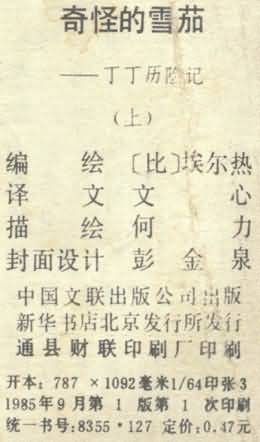 奇怪的雪茄
——丁丁历险记
（上）
编 绘 〔比〕埃尔热
译 文 文 心
描 绘 何 力
封面设计 彭 金 泉
中国文联出版公司出版
新华书店北京发行所发行
通县财联印刷厂印刷
开本：787 ×1092毫米1/64印张3
1985年9月第 1 版第 1 次印刷
统一书号：8355·127 定价：0.47元